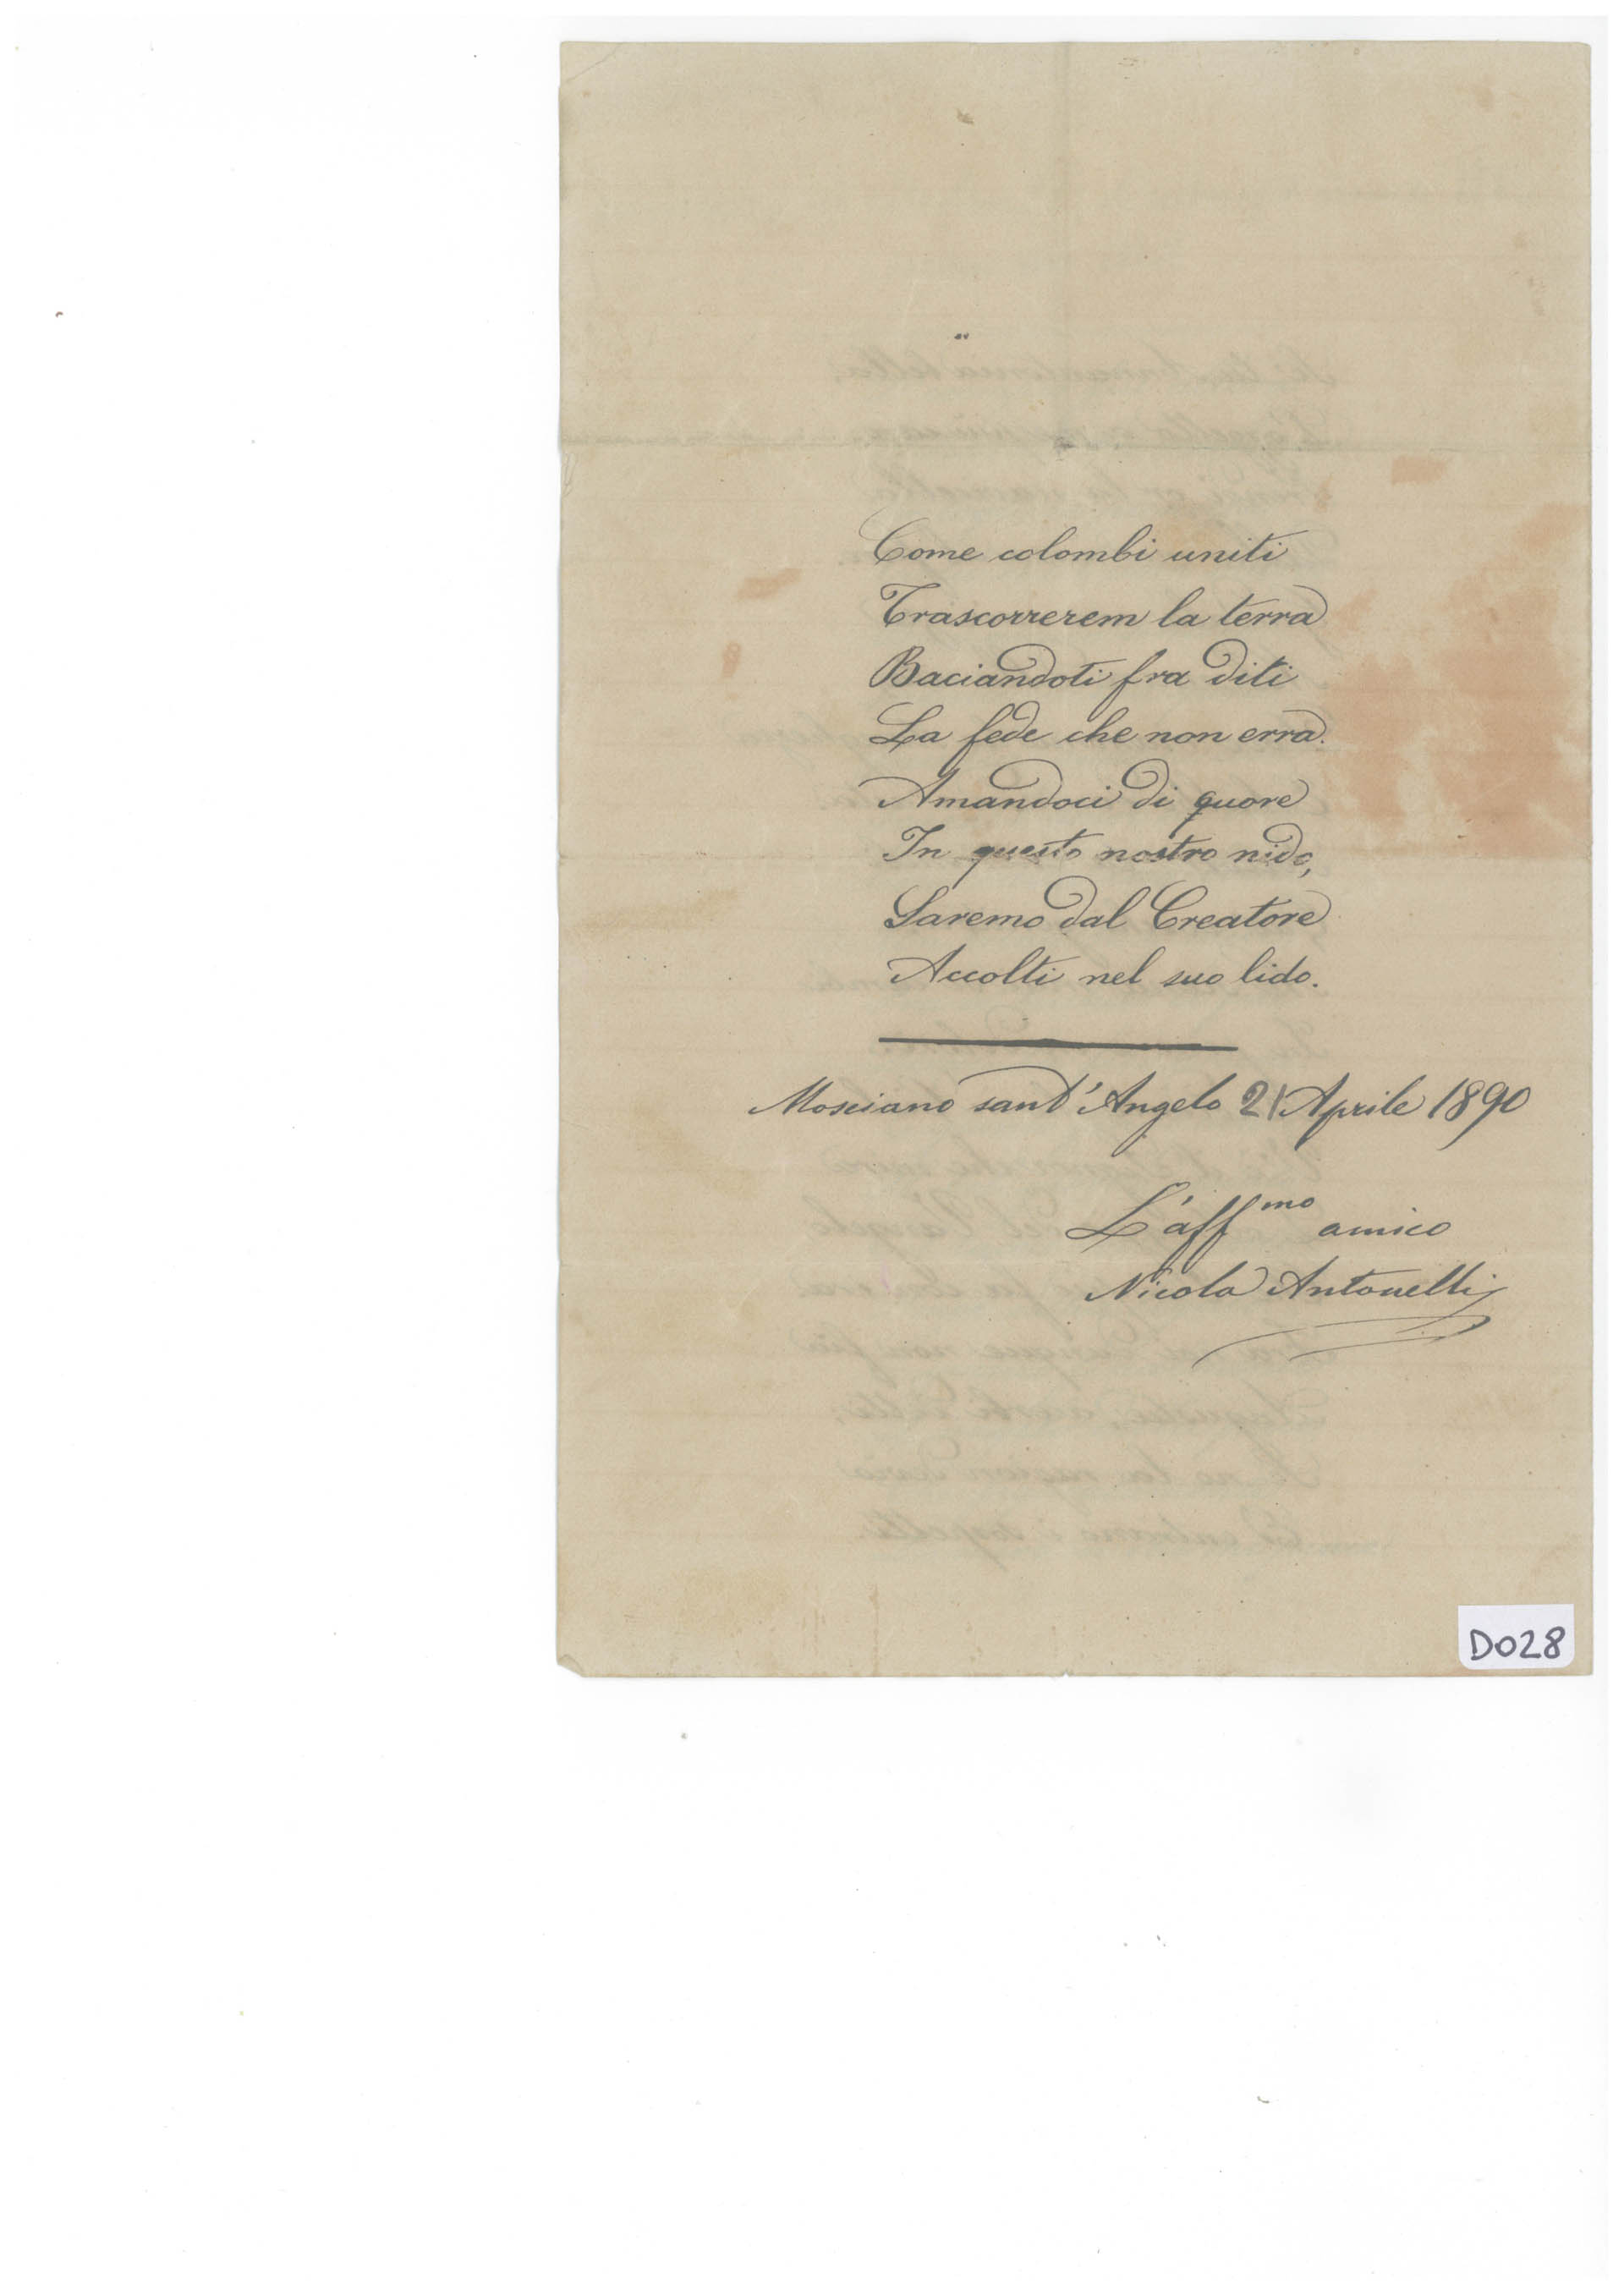 Come colombi uniti
Trascorrerem la terra
Baciandoti fra diti
La fede che non erra.
Amandoci di quore
In questo nostro nido,
Saremo dal Creatore
Accolti nel suo lido.
Mosciano sant'Angelo 21 Aprile 1890
L'aff.mo amico
Nicola Antonelli
D028